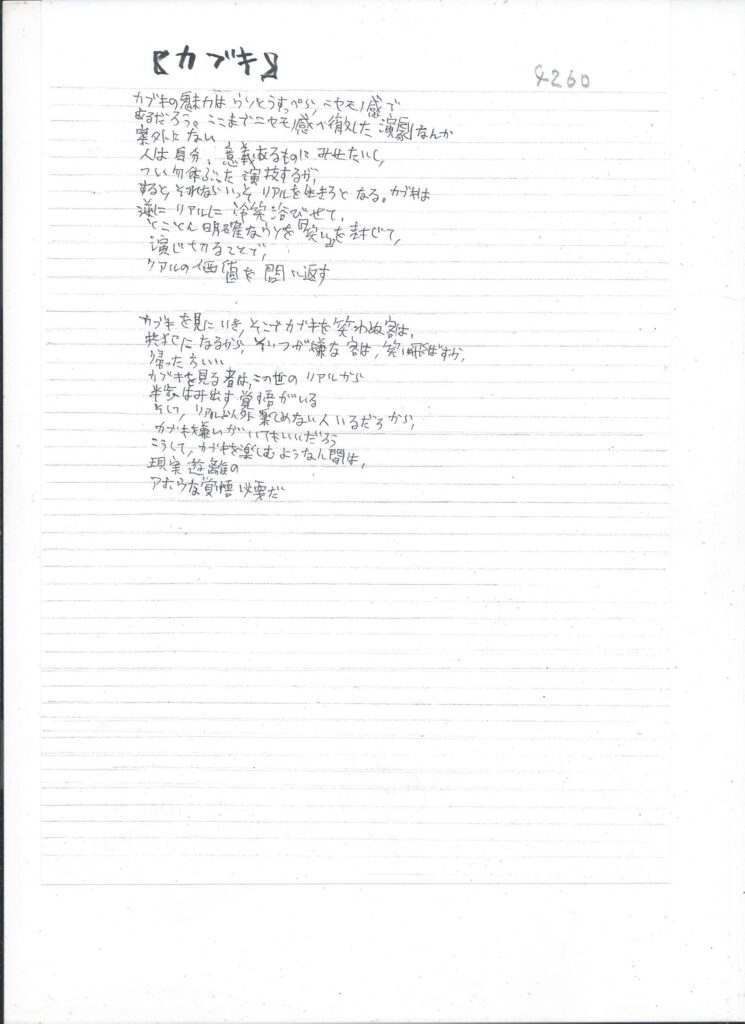 【カブキ】
4260
カブキの魅力はウソとうすっぺら,ニセモノ感で
あるだろう。ここまでニセモノ感へ徹した演劇なんか
案外にない
人は自分、意義あるものにみせたいし,
つい勿体ぶった演技するが,
すると,それならいっそ,リアルを生きろとなる。カブキは
逆にリアルに冷笑浴びせて,
とことん明確なウソを『笑い』を封じて,
演じ切ることで,
リアルの価値を問い返す
カブキを見にいき,そこでカブキを笑わぬ客は,
共犯になるから,そいつが嫌な客は,笑い飛ばすか,
帰った方いい
カブキを見る者は,この世のリアルから
半歩はみ出す覚悟がいる
そして,リアル以外楽しめない人いるだろから,
カブキ嫌いがいてもいいだろう
こうして,カブキを楽しむような人間は,
現実遊離の
アホウな覚悟必要だ